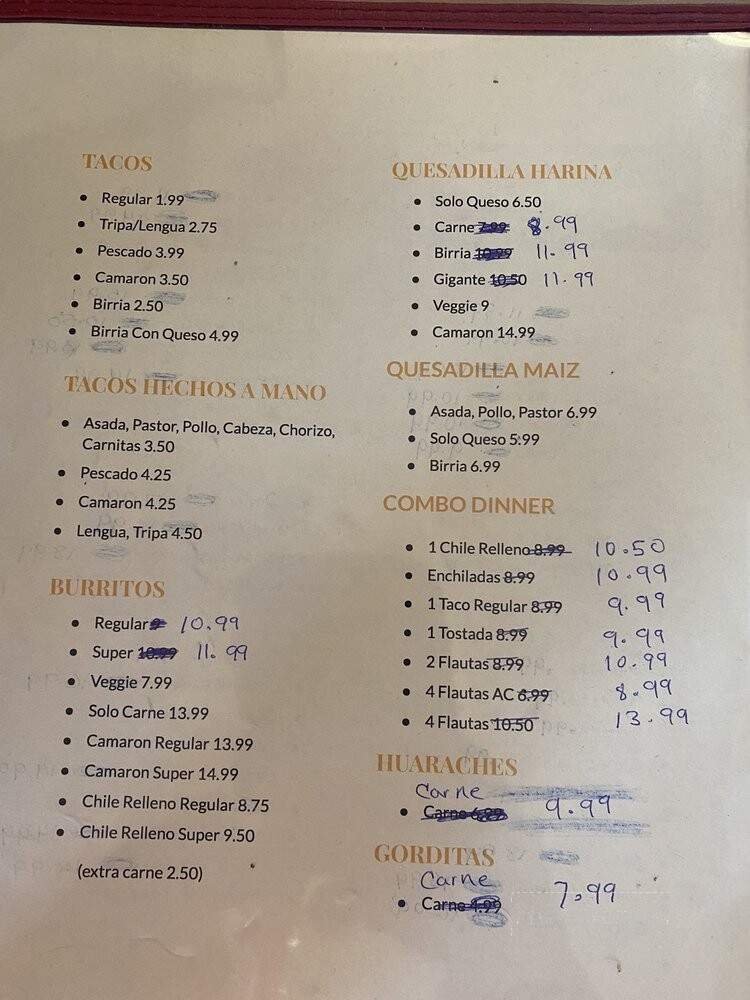 TACOS
Regular 1.99
Tripa/Lengua 2.75
Pescado 3.99
Camaron 3.50
Birria 2.50
Birria Con Queso 4.99
TACOS HECHOS A MANO
Asada, Pastor, Pollo, Cabeza, Chorizo,
Carnitas 3.50
Pescado 4.25
Camaron 4.25
Lengua, Tripa 4.50
BURRITOS
Regular 9 10.99
Super 10.99 11.99
Veggie 7.99
Solo Carne 13.99
Camaron Regular 13.99
Camaron Super 14.99
Chile Relleno Regular 8.75
Chile Relleno Super 9.50
(extra carne 2.50)
QUESADILLA HARINA
Solo Queso 6.50
Carne 7.99 8.99
Birria 10.99 11.99
Gigante 10.50 11.99
Veggie 9
Camaron 14.99
QUESADILLA MAIZ
Asada, Pollo, Pastor 6.99
Solo Queso 5.99
Birria 6.99
COMBO DINNER
1 Chile Relleno 8.99 10.50
Enchiladas 8.99 10.99
1 Taco Regular 8.99 9.99
1 Tostada 8.99 9.99
2 Flautas 8.99 10.99
4 Flautas AC 6.99 8.99
4 Flautas 10.50 13.99
HUARACHES
Carne
Carne 6.99 9.99
GORDITAS
Carne
Carne 4.99 7.99